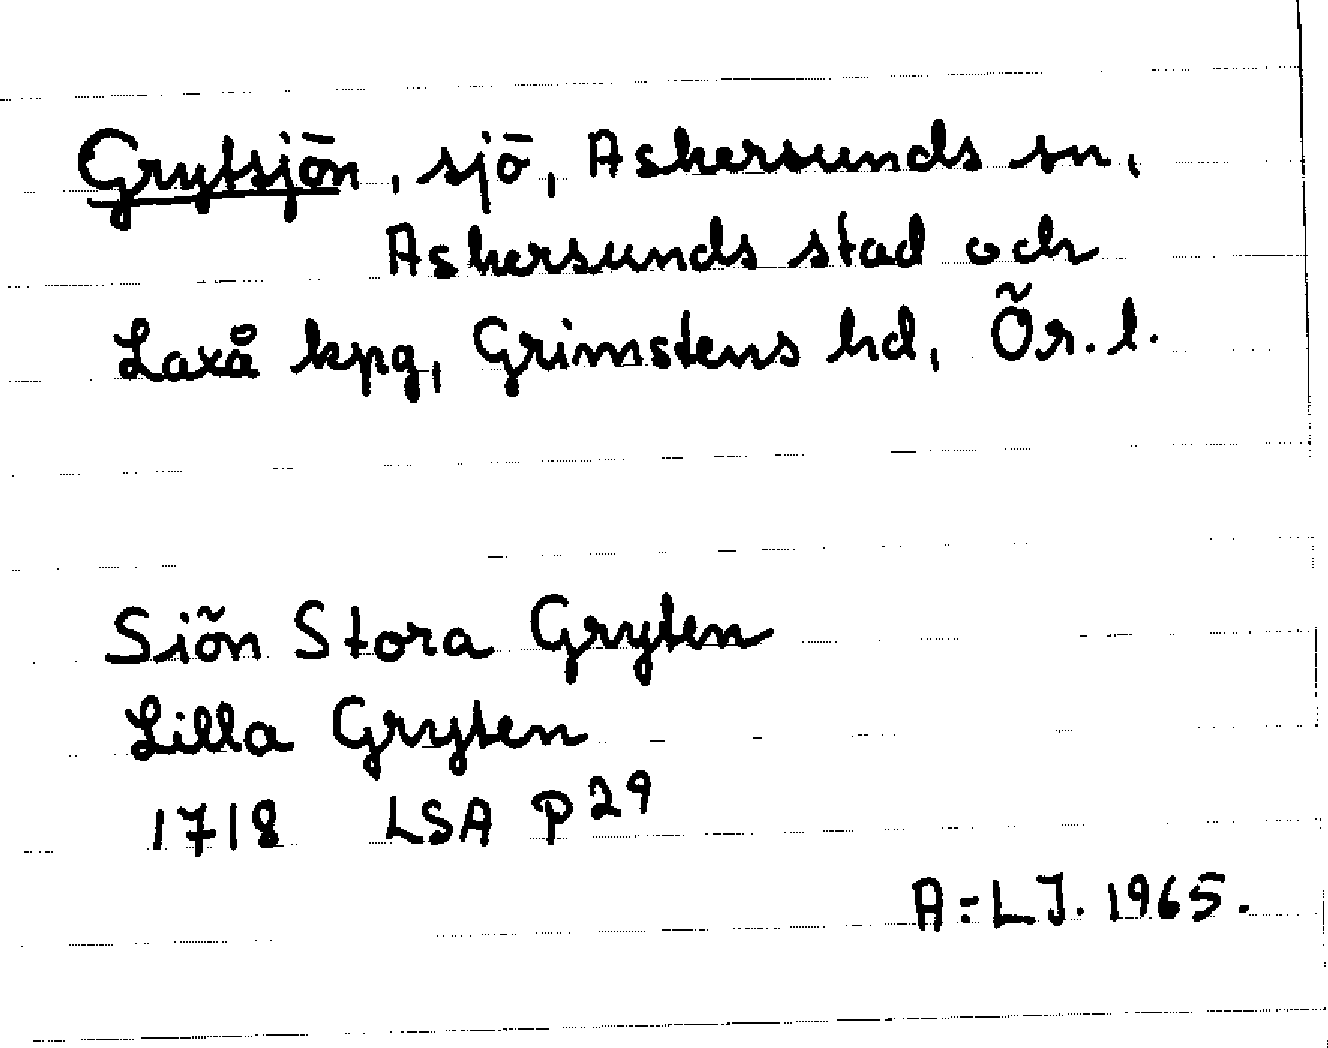 Grytsjön, sjö, Askersunds sn,
Askersunds stad och
Laxå kpg, Grimstens hd, Ör. l.
Siön Stora Gryten
Lilla Gryten
1718 LSA P 29
A-LJ. 1965.